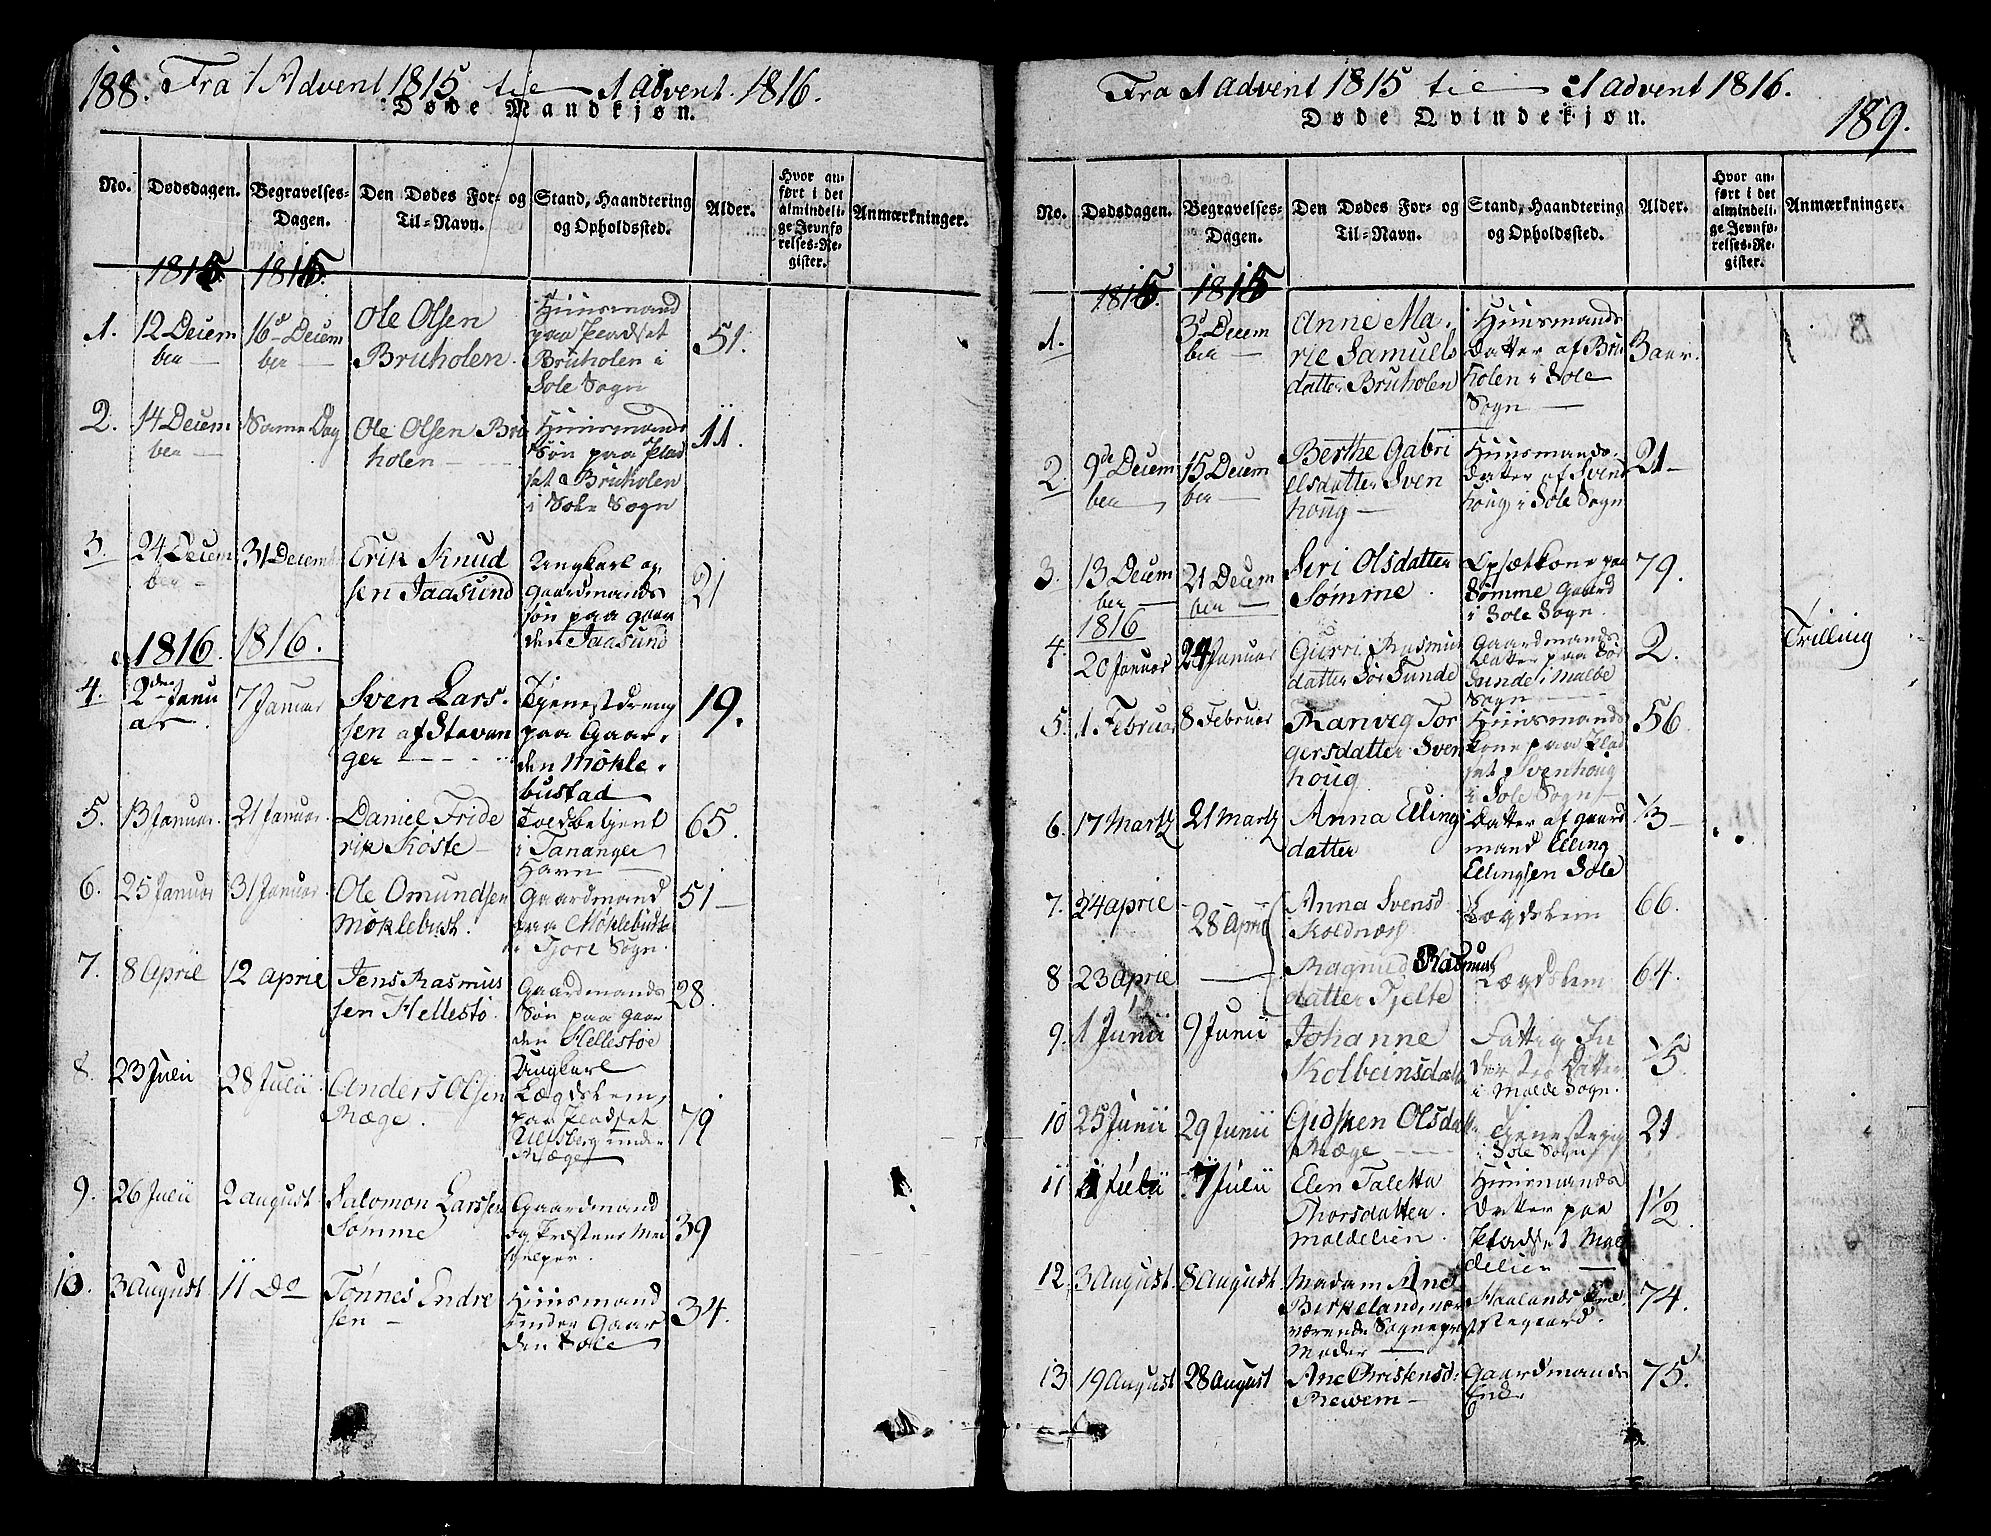 188. Fra 1 Advent 1815 til 1 advent 1816.
Døde Mandkjøn.
No.
Dødsdagen.
Begravelses-
Dagen.
Den Dødes For- og
Til-Navn.
Stand, Haandtering
og Opholdssted.
Alder.
Hvor an-
ført i det
almindeli-
ge Jevnfø-
relses-Re-
gister.
Anmærkninger.
1815 1815
1.
12 Decem
ber
16d Decem
ber
Ole Olsen
Bruholen.
Huusmand
paa Pladset
Bruholen i
Sole Sogn
51.
2.
14 Decem
ber
Samme Dag
Ole Olsen Bru
holen
Huusmands
Søn paa Plad
set Bruholen
i Sole Sogn
11.
3.
24 Decem
ber
31 Decemb
Erik Knud
sen Jaasund
Ungkarl og
Gaardmands
søn paa Gaar
den Jaasund
21
1816. 1816.
4.
2den Janu
ar.
7 Januar
Sven Lars-
sen af Stavan
ger
Tjenestdreng
paa Gaar-
den Møkle-
bustad
19.
5.
13 Januar.
21 Januar.
Daniel Fride
rik Køste
Toldbetjent
i Tananger
Havn
65.
6.
25 Januar
31 Januar.
Ole Omundsen
Møklebust.
Gaardmand
paa Møklebust
i Tjore Sogn.
51
7.
8 April
12 april
Jens Rasmus
sen Hellestø.
Gaardmands
Søn paa Gaar
den Hellestøe
28.
8.
23 Julii
28 Julii
Anders Olsen
Ræge.
Ungkarl
Lægdslem,
paa Pladset
under
Ræge
79
9.
26 Julii
2 august
Salomon Larssen
Sømme
Gaardmand
og Præstens Med
hjelper.
39
10.
3 August
11 Do
Tønnes Endre
sen
Huusmand
under Gaar
den Sole
34.
Fra 1 advent 1815 til 1 advent 1816.
189.
Døde Qvindekjøn.
No.
Dødsdagen.
Begravelses-
Dagen.
Den Dødes For- og
Til-Navn.
Stand, Haandtering
og Opholdssted.
Alder.
Hvor an-
ført i det
almindeli-
ge Jevnfø-
relses-Re-
gister.
Anmærkninger.
1815 1815
1.
3d Decem
ber
Anne Ma-
rie Samuels
datter Bruholen
Huusmands
Datter af Bru
holen i Sole
Sogn
3 aar
2.
9de Decem
ber
15 Decem
ber
Berthe Gabri
elsdatter Sven
houg
Huusmands-
Datter af Svend
houg i Sole Sogn
21
3.
13 Decem
ber
21 Decem
ber
Seri Olsdatter
Sømme.
Opsætkone paa
Sømme Gaard
i Sole Sogn.
79.
1816
4.
20 Januar
24 Januar
Gurri Rasmus
datter Sør Sunde
Gaardmands
Datter paa Sør
Sunde i Malde
Sogn
2.
Trilling
5.
1 Februar
8 Februar
Ranveg Tor
gersdatter Sven
houg
Huusmands
Kone paa Plad
set Svenhoug
i Sole Sogn
56.
6.
17 Martz
21 Martz
Anna Elling
datter
Datter af gaard
mand Elling
Ellingsen Sole
1/3
7.
24 april
28 April
Anna Svensd.
Koldnæs
Lægdslem
66.
8
23 april
Ragnild Rasmus
datter Tjelte
Lægdslem
64.
9.
1 Junii
9 Junii
Johanne
Kolbeinsdatter
Fattig In
derstes Datter
i Malde Sogn.
1/5
10
25 Junii
29 Junii
Gidsken Olsdatt
Ræge
Tjenestepige
i Sole Sogn
21
11
1 Julii
7 Julii
Elen Taletta
Thorsdatter.
Maldelien.
Huusmands
Datter paa
Pladset Mal
delien
1 1/2
12.
3 August
8 August
Madam Ane
Birkeland nær
værende Sognepræst
Moder
Haalands Præ
stegaard.
74.
13
19 August
28 August
Ane Christensd.
Rewem
Gaardmands
Enke
75.